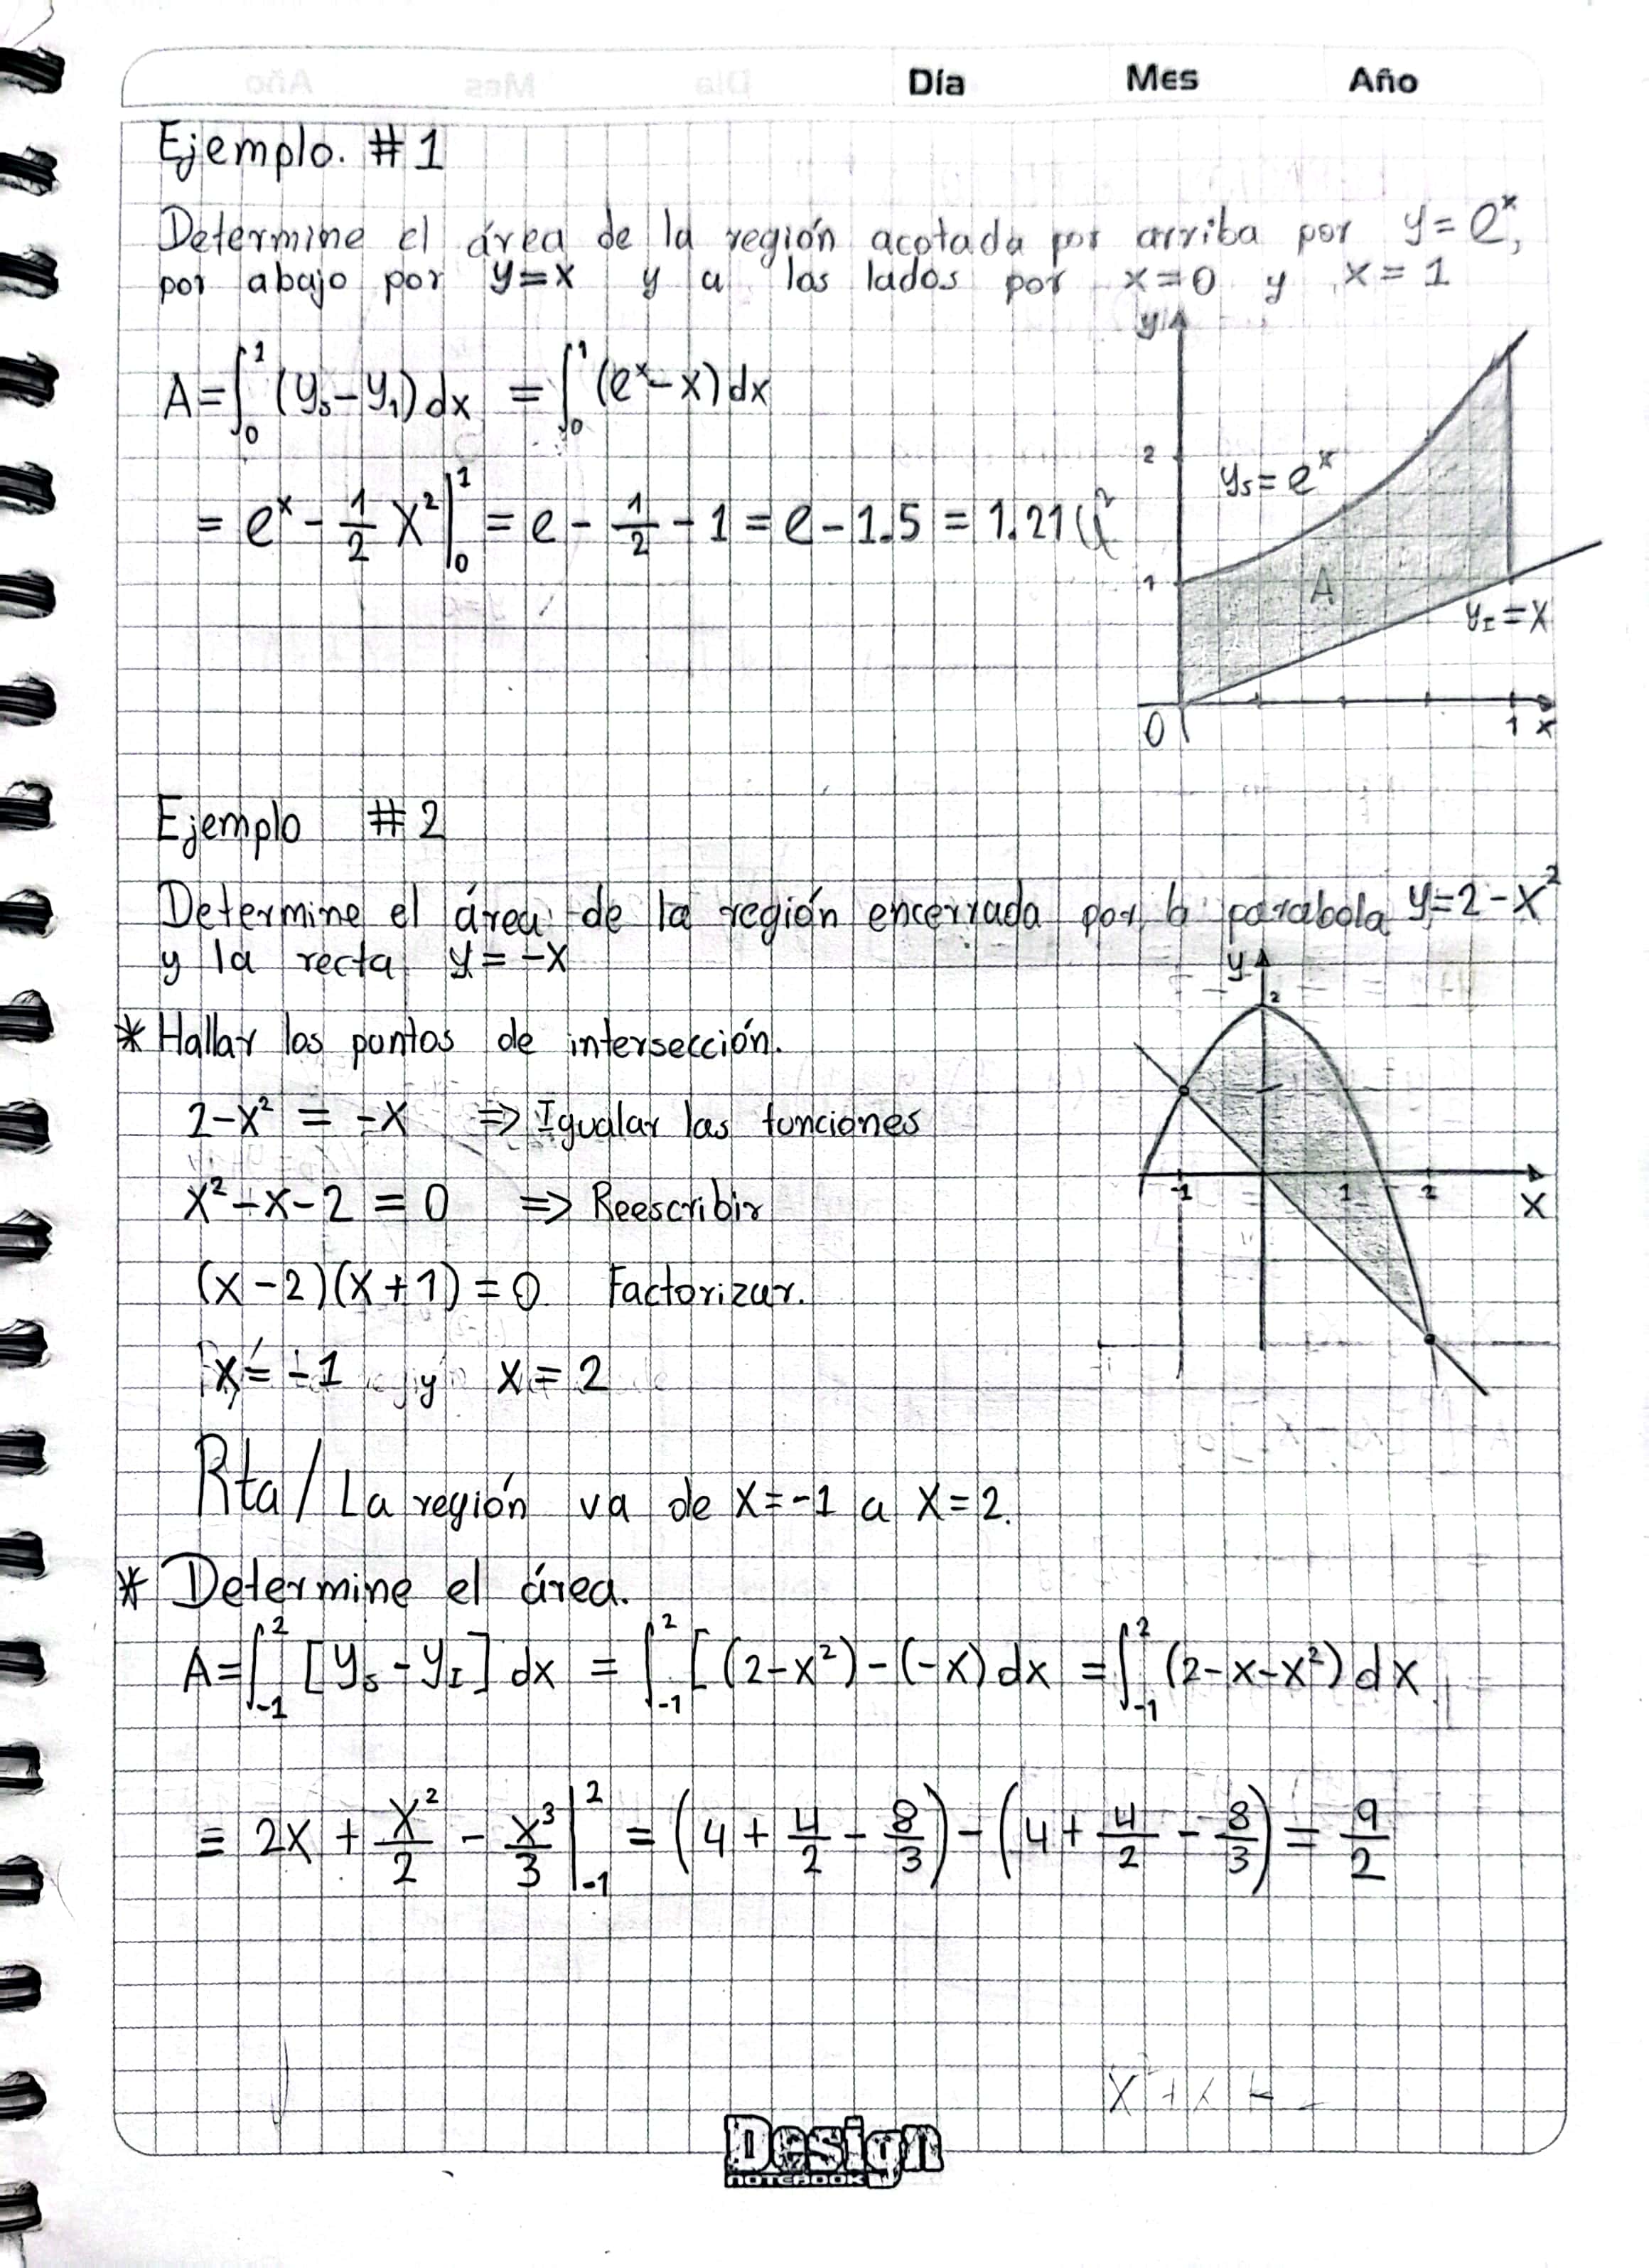 Día Mes Año
Ejemplo. #1
Determine el área de la región acotada por arriba por y = e^x,
por abajo por y=x y a los lados por x=0 y x=1
A=∫_0^1 (y_s-y_1) dx = ∫_0^1 (e^x-x) dx
= e^x - 1/2 x^2 |_0^1 = e - 1/2 - 1 = e - 1.5 = 1.21 U^2
y
2
y_s = e^x
1
A
y_I = x
0 1 x
Ejemplo #2
Determine el área de la región encerrada por la parabola y=2-x^2
y la recta y=-x
y
2
-1 1 2
x
* Hallar los puntos de intersección.
2-x^2 = -x => Igualar las funciones
x^2-x-2 = 0 => Reescribir
(x-2)(x+1) = 0 Factorizar.
x = -1 y x = 2
Rta/ La región va de x=-1 a x=2.
* Determine el área.
A=∫_-1^2 [y_s-y_I] dx = ∫_-1^2 [(2-x^2)-(-x) dx = ∫_-1^2 (2-x-x^2) dx
= 2x + x^2/2 - x^3/3 |_-1^2 = (4 + 4/2 - 8/3) - (4 + 4/2 - 8/3) = 9/2
Design
NOTEBOOK